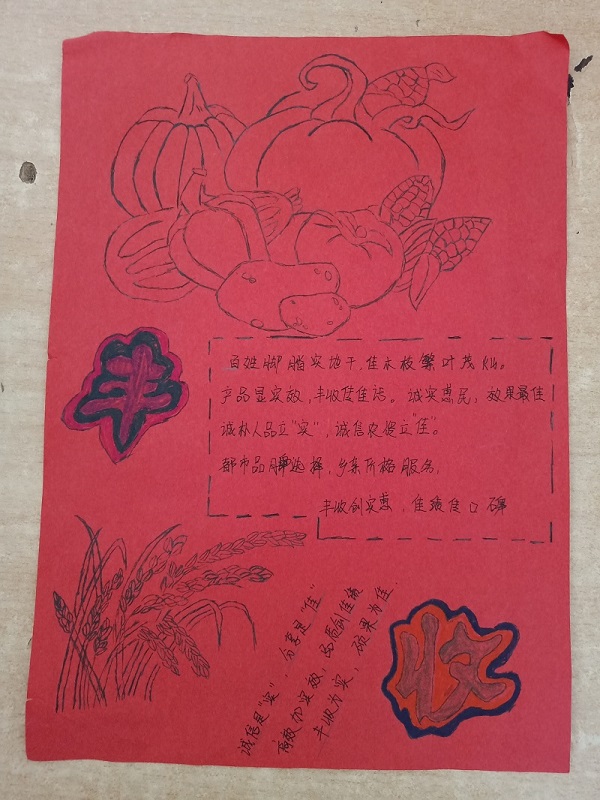 丰
百姓脚踏实地干,佳木枝繁叶茂灿。
产品显实效,丰收传佳话。诚实惠民,效果最佳
诚朴人品立"实",诚信农健立"佳"。
都市品牌选择,乡亲所格服务,
丰收创实惠,佳绩佳口碑
诚信是"实",分享是"佳"
高效加实效,品质创佳绩
丰收为实,硕果为佳.
收